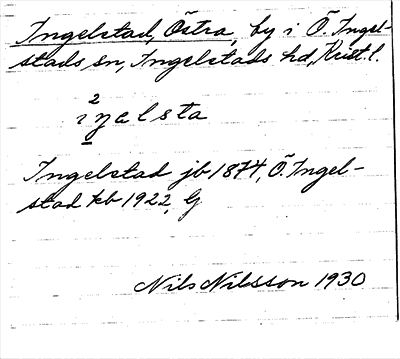 Ingelstad, Östra, by i Ö. Ingel-
stads sn, Ingelstads hd, Krist. l.
2
iŋɐlsta
Ingelstad jb 1874, Ö. Ingel-
stad kb 1922, G
Nils Nilsson 1930